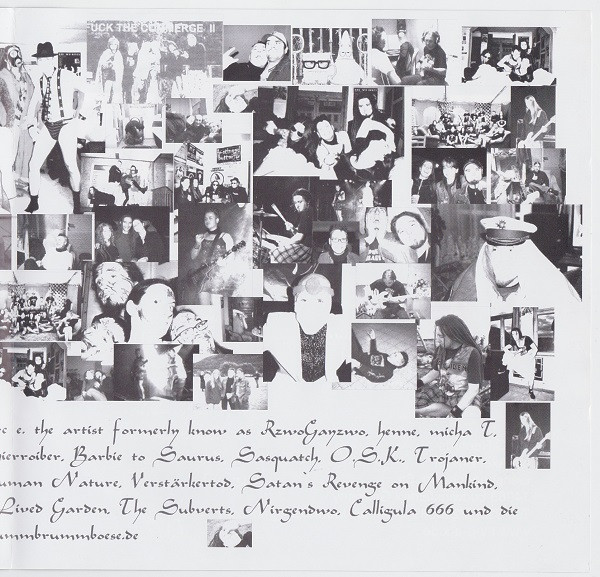 UCK THE COMMERGE II
rc e. the artist formerly know as RzwoGanzwo, henne, micha T,
ierroiber, Barbie to Saurus, Sasquatch, O.S.K., Trojaner,
uman Nature, Verstärkertod, Satan's Revenge on Mankind,
Lived Garden, The Subverts, Nirgendwo, Calligula 666 und die
ummbrummboese.de